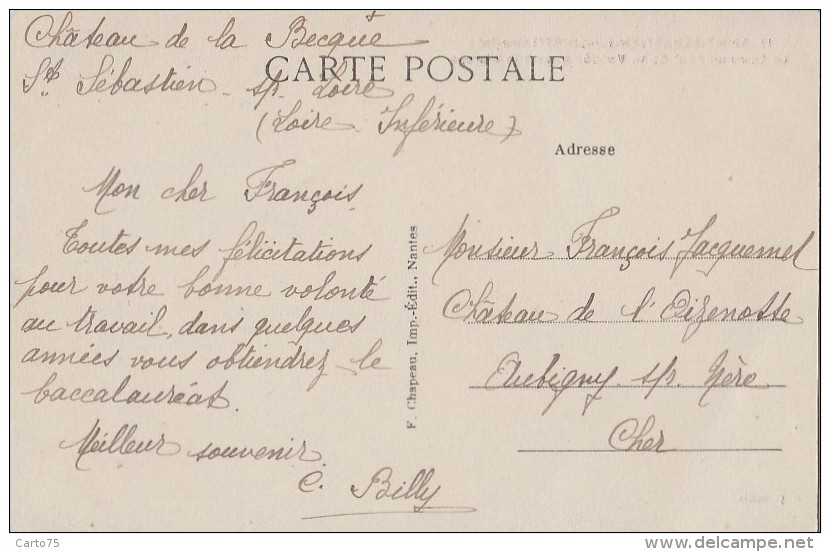 Château de la Becque
St Sébastien s/r Loire
(Loire Inférieure)
CARTE POSTALE
Adresse
Mon cher François
Toutes mes félicitations
pour votre bonne volonté
au travail, dans quelques
années vous obtiendrez le
baccalauréat.
Meilleur souvenir
C. Billy
F. Chapeau, Imp.-Édit., Nantes
Monsieur François Jacquemet
Château de l'Oizenotte
Aubigny s/r Nère
Cher
Carto75
www.delcampe.net